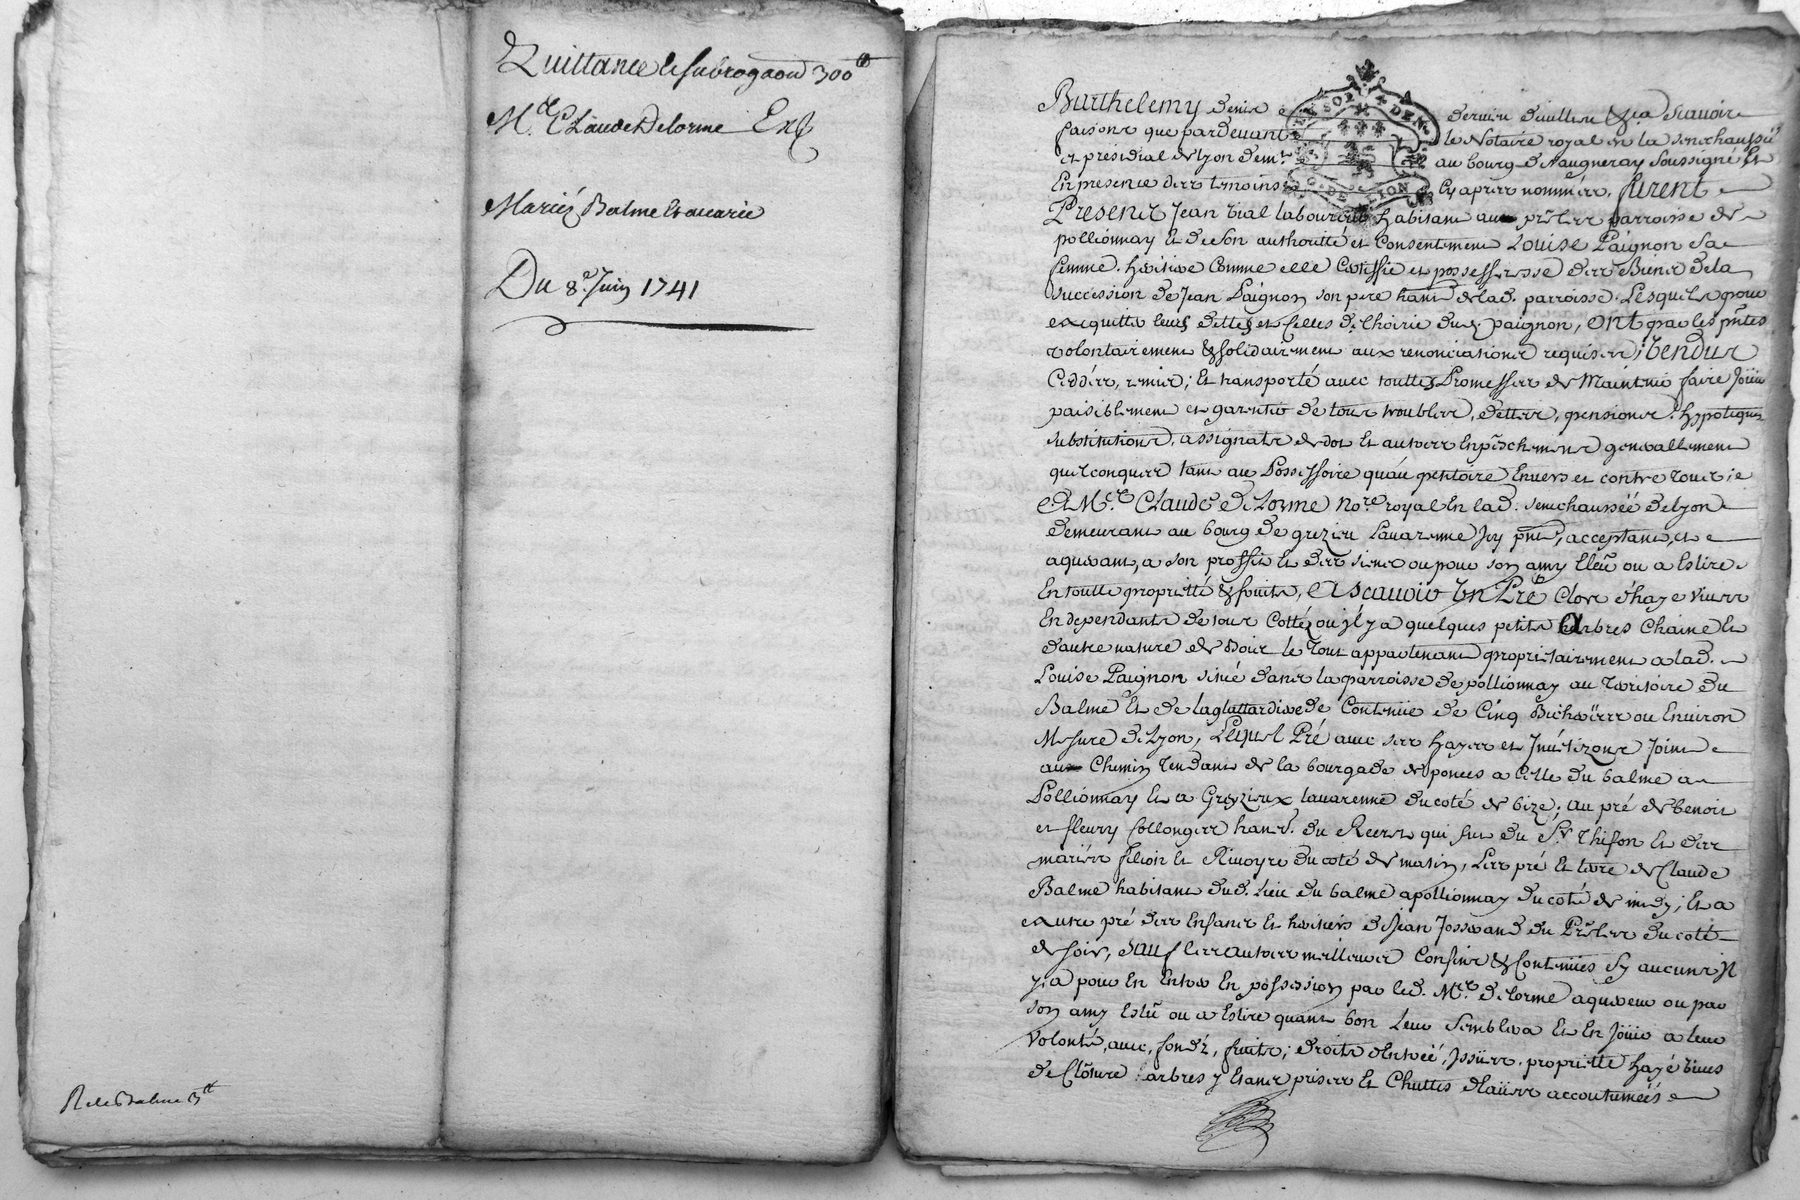 Quittance et subrogaôn 300tt
Me. Claude Delorme Ext
Mariéz Balme et
Du 8e. Juin 1741
R de Balme 3tt
GEN. SOLS DEN.
G. DE LION
Barthelemy denis dernier scavoir
faisons que pardevant le Notaire royal en la senechaussée
et presidial de Lyon demt. au bourg de Vaugneray soussigné et
En presence des temoins cy apres nommés, furent
Presents Jean Vial laboureur habitant au parroisse de
pollionnay et de son authorité et Consentement Louise Paignon sa
femme, heritiere Comme elle Certiffie et possesseresse des Biens de la
succession de Jean Paignon son pere hant. de lad. parroisse. Lesquels pour
acquitter leurs dettes et Celles de lhoirie dud. paignon, ont par les pntes
volontairement & solidairement aux renonciations requises, vendus
Ceddés, remis, et transporté avec touttes Promesses de Maintenir faire Jouir
paisiblement et garentir de tous troubles, dettes, pensions, hypoteques
substitutions, assignats de dot et autres Enpeschements generallement
quelconques tant au Possessoire quau petitoire Envers et contre tous
A Me. Claude Delorme Nore. royal En lad. senechaussée de Lyon
demeurant au bourg de grezieu Lavarenne Icy pnt, acceptant, et
aquerant, a son proffit et des siens ou pour son amy Eleu ou a Eslire
En toutte proprietté & fruits, A scavoir Un Pré Clos d'haye vives
En dependants de tous Cottéz ou il y a quelques petits arbres Chaine et
d'autre nature de Bois le Tout appartenant proprietairement a lad.
Louise Paignon situé dans la parroisse de pollionnay au Territoire du
Balme et de Contenüe de Cinq Bicherés ou Environ
Mesure de Lyon, Lequel Pré avec ses hayes et Joint
au Chemin Tendant de la bourgade de ponces a Celle du balme a
Pollionnay et a Grezieux lavarenne du coté de bize, au pré de Benoit
et fleury Collonges hants. du Recret qui fut du Sr. Thifon et des
mariés filion et Rivoyre du coté de matin, Les pré et terre de Claude
Balme habitant dud. Lieu du balme a pollionnay du coté de midy, et a
autre pré des Enfants et heritiers de Jean Josserand du du coté
de soir, sauf les autres meilleurs Confins & Contenües sy aucuns il
y a pour En Entrer En possession par led. Me. Delorme aquereur ou par
son amy Esleu ou a Eslire quant bon Leur Semblera et En Jouir a leur
volonté, avec, fondz, fruits, droits d'Entrée, Issües, proprietté hayé vives
de Clôture arbres y Etants prises et Chuttes d'Eaües accoutumées